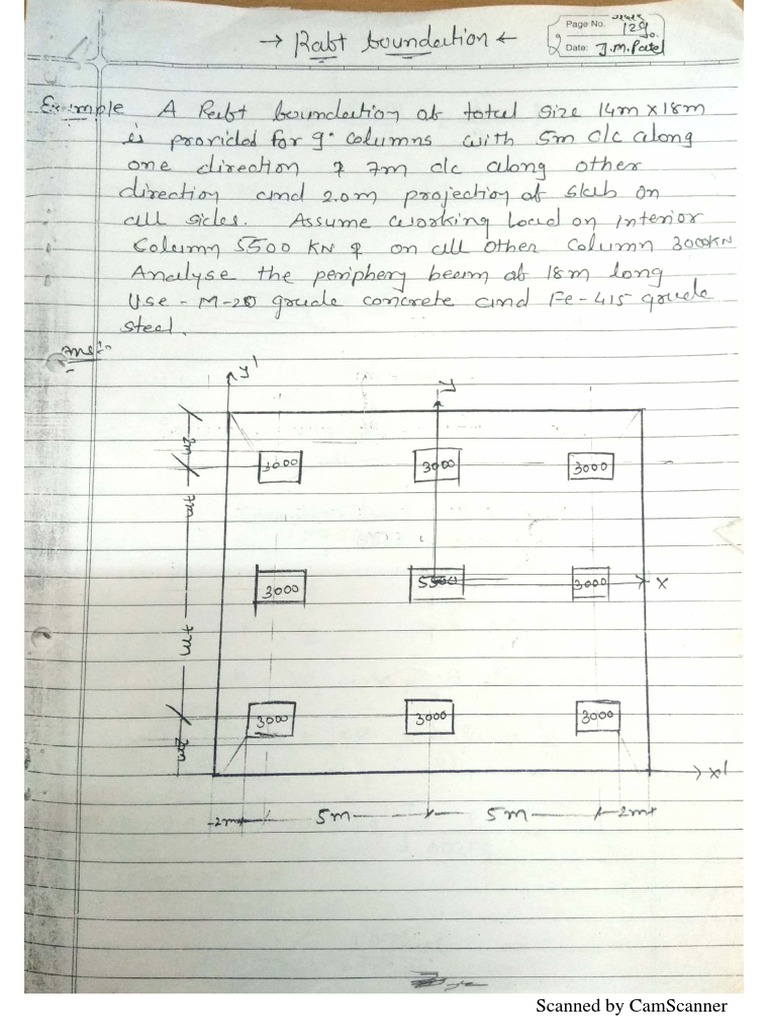 → Raft foundation ←
Page No. 129.
Date: J.M. Patel
Example A Raft foundation of total size 14m x 18m
is provided for 9 columns with 5m c/c along
one direction & 7m c/c along other
direction and 2.0m projection of slab on
all sides. Assume working load on interior
column 5500 KN & on all other column 3000KN
Analyse the periphery beam of 18m long
Use - M-20 grade concrete and Fe-415 grade
steel.
Ans:-
y'
y
2m
3000 3000 3000
7m
3000 5500 3000 x
7m
3000 3000 3000
2m
x'
2m 5m 5m 2m
Scanned by CamScanner